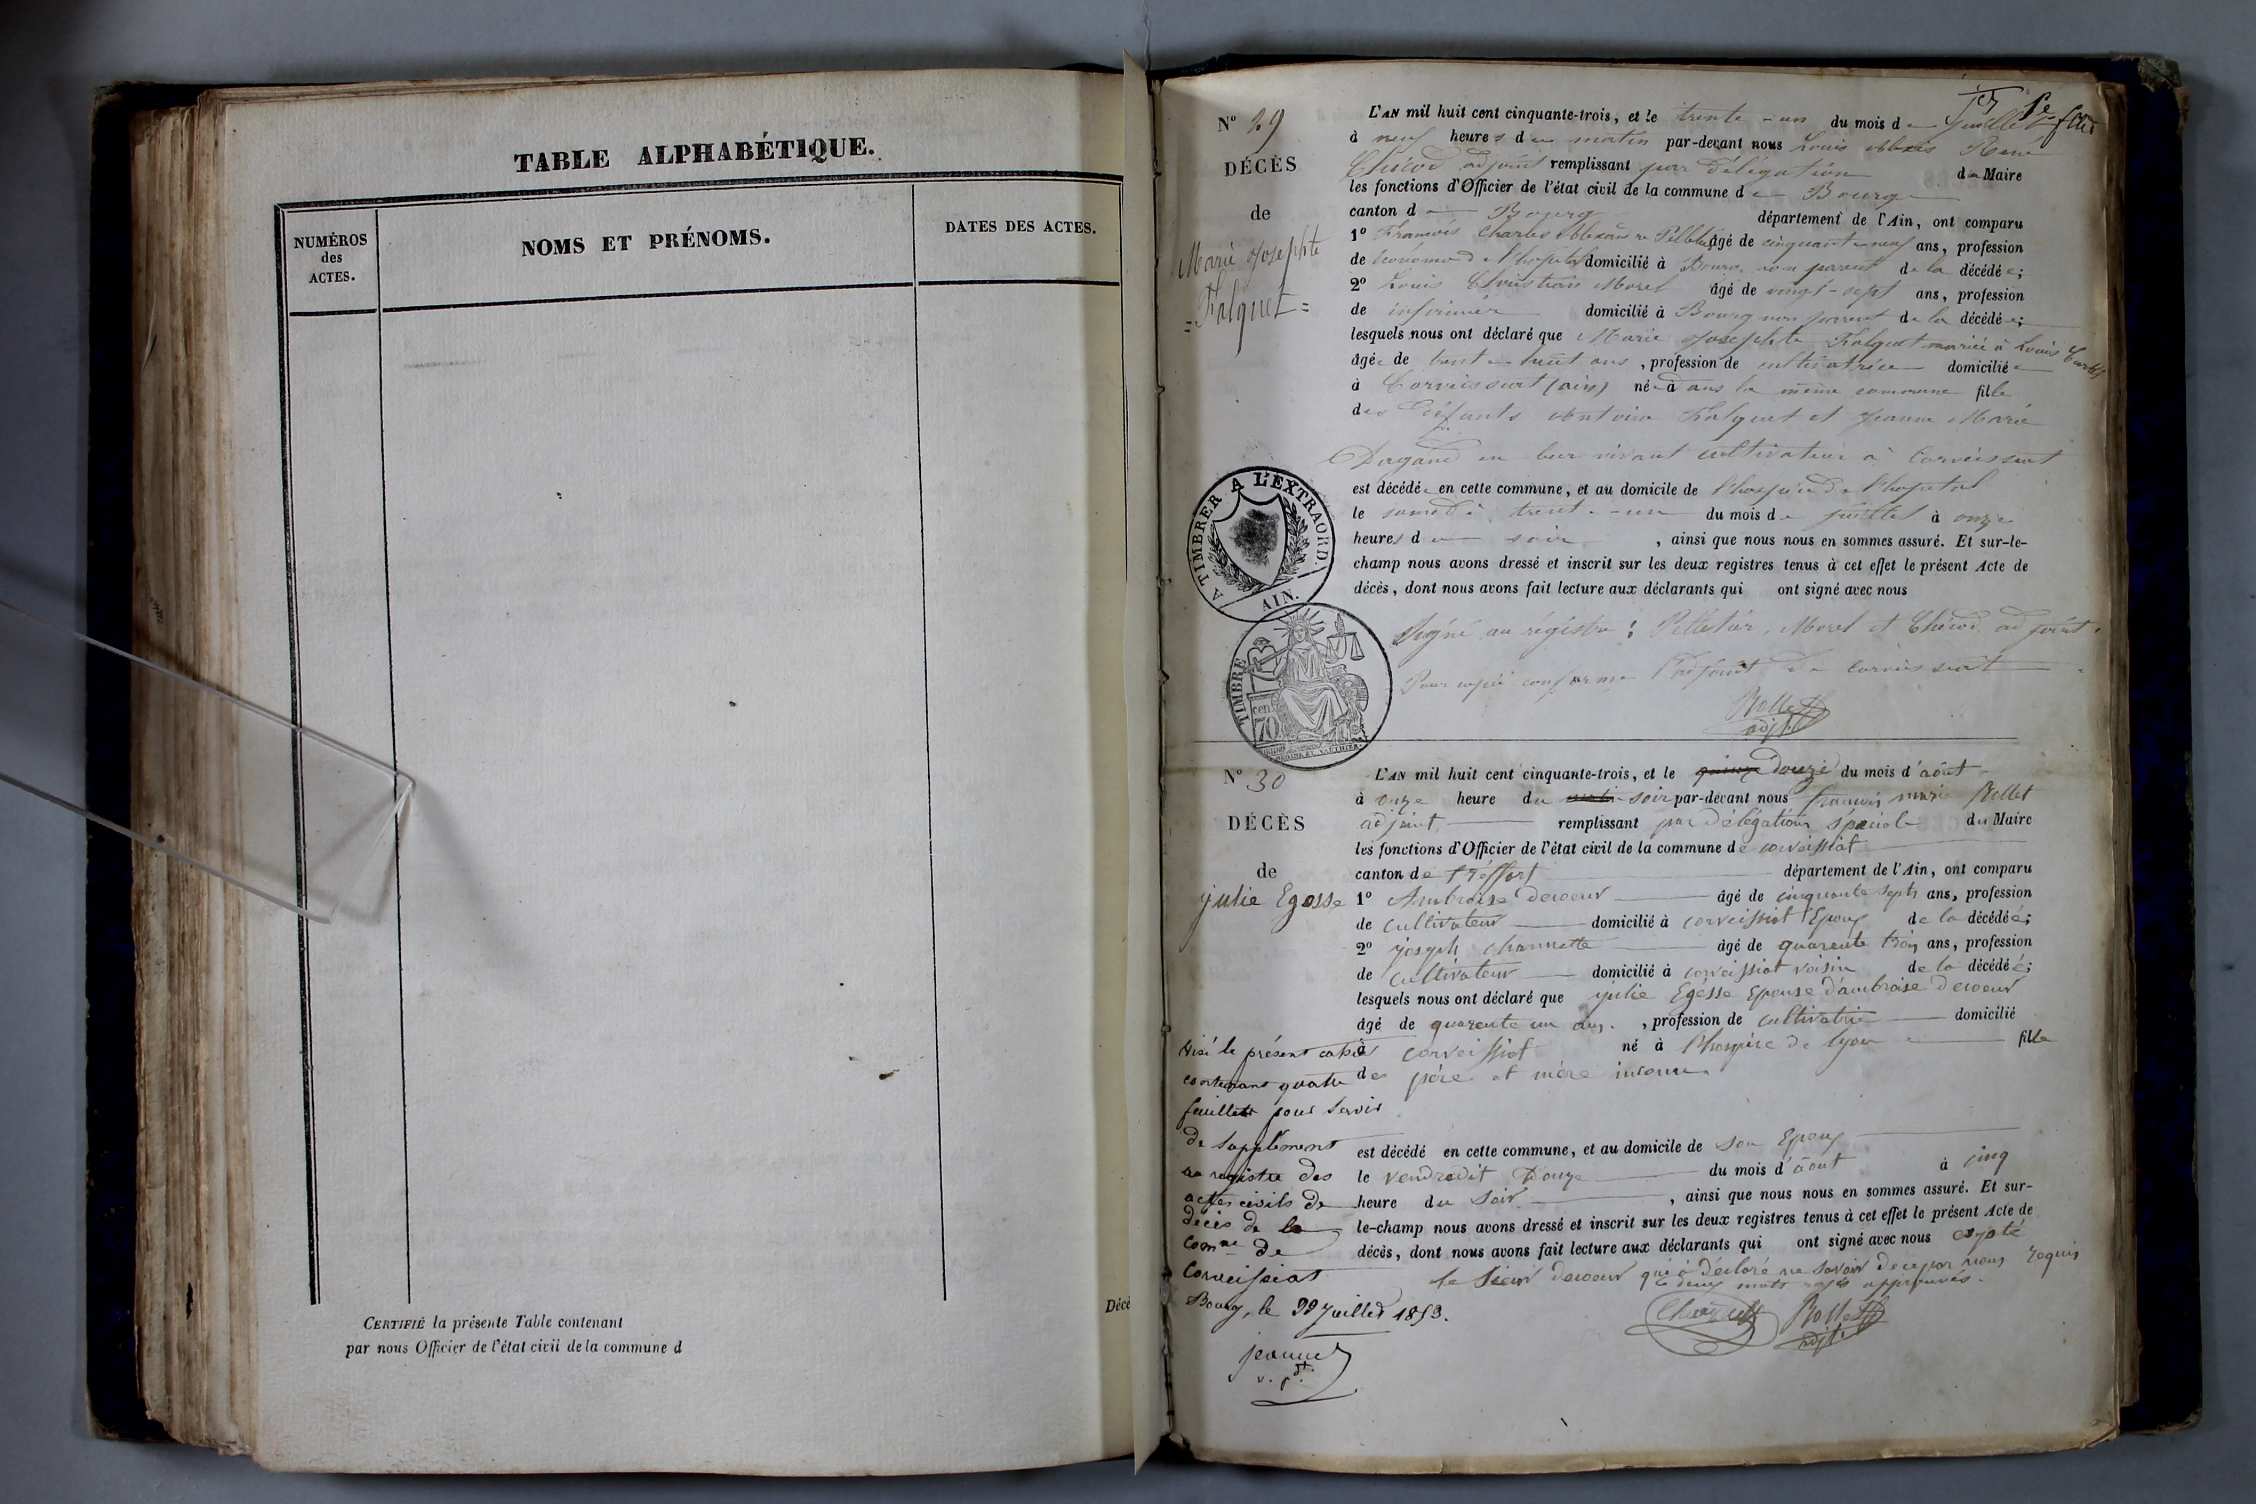 TABLE ALPHABÉTIQUE.
NUMÉROS
des
ACTES.
NOMS ET PRÉNOMS.
DATES DES ACTES.
CERTIFIÉ la présente Table contenant
par nous Officier de l'état civil de la commune d
Décè
Nº 29
DÉCÈS
de
Marie Josephte
= Falquet =
L'AN mil huit cent cinquante-trois, et le trente-un du mois de juillet
à neuf heures du matin par-devant nous Louis René
Chicod adjoint remplissant par délégation du Maire
les fonctions d'Officier de l'état civil de la commune de Bourg
canton de Bourg département de l'Ain, ont comparu
1º François Charles âgé de cinquante-neuf ans, profession
de économe d domicilié à Bourg non parent de la décédée;
2º Louis Christian Morel âgé de vingt-sept ans, profession
de infirmier domicilié à Bourg non parent de la décédée;
lesquels nous ont déclaré que Marie Josephte Falquet mariée à Louis
âgée de trente huit ans, profession de cultivatrice domiciliée
à Corveissiat (ain) née dans la même commune fille
des défunts Antoine Falquet et Jeanne Marie
Dagand en leur vivant cultivateur à Corveissiat
est décédée en cette commune, et au domicile de l'hospice de l'hopital
le samedi trente-un du mois de juillet à onze
heures du soir, ainsi que nous nous en sommes assuré. Et sur-le-
champ nous avons dressé et inscrit sur les deux registres tenus à cet effet le présent Acte de
décès, dont nous avons fait lecture aux déclarants qui ont signé avec nous
Signé au régistre : Pelletier Morel et Chicod adjoint.
Pour copie conforme l'adjoint de Corveissiat
Rollet
adjt
A TIMBRER A L'EXTRAORD.
AIN.
TIMBRE
cent
70
Nº 30
DÉCÈS
de
julie Egosse
L'AN mil huit cent cinquante-trois, et le quinze douze du mois d'août
à onze heure du matin soir par-devant nous françois marie Rollet
adjoint remplissant par délégation spéciale du Maire
les fonctions d'Officier de l'état civil de la commune de corveissiat
canton de tréffort département de l'Ain, ont comparu
1º Ambroise decoeur âgé de cinquante sept ans, profession
de cultivateur domicilié à corveissiat Epoux de la décédée;
2º joseph channette âgé de quarente trois ans, profession
de cultivateur domicilié à corveissiat voisin de la décédée;
lesquels nous ont déclaré que julie Egosse Epouse d'ambroise decoeur
âgé de quarente un ans, profession de cultivatrice domicilié
à corveissiat né à l'hospice de lyon fille
de père et mère inconnu
est décédé en cette commune, et au domicile de son Epoux
le vendredit Douze du mois d'août à cinq
heure du soir, ainsi que nous nous en sommes assuré. Et sur-
le-champ nous avons dressé et inscrit sur les deux registres tenus à cet effet le présent Acte de
décès, dont nous avons fait lecture aux déclarants qui ont signé avec nous
le sieur decoeur qui à déclaré ne savoir de ce par nous requis
deux mots rayés approuvés.
Rollet
adjt.
Visé le présent cahier
contenant quatre
feuillets pour servir
de supplément
au registre des
actes civils de
décès de la
comne de
Corveissiat
Bourg, le 29 juillet 1853.